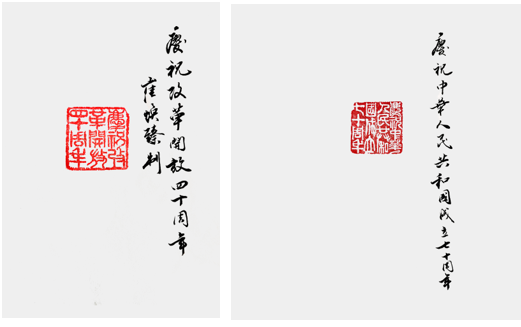 慶祝改革開放四十周年
崔焕臻制
慶祝改
革開放
四十周年
慶祝中華人民共和國成立七十周年
慶祝中華
人民共和
國成立
七十周年